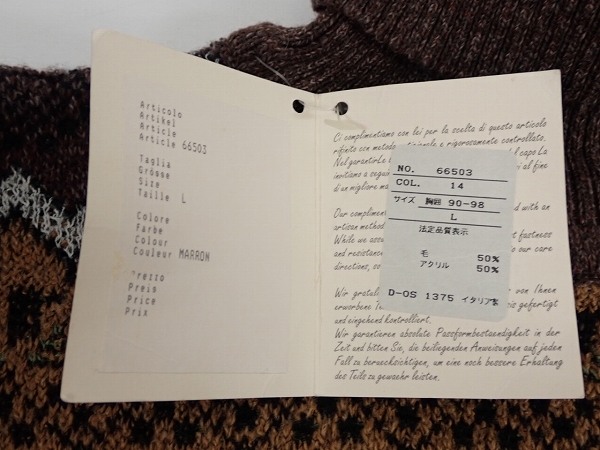 Articolo
Artikel
Article
Article 66503
Taglia
Grösse
Size
Taille L
Colore
Farbe
Colour
Couleur MARRON
Prezzo
Preis
Price
Prix
Ci complimentiamo con lei per la scelta di questo articolo
rifinito con metodo e rigorosamente controllato.
Nel garantirLe del capo La
invitiamo a segui al fine
di un migliore
NO. 66503
COL. 14
サイズ 胸囲 90-98
L
法定品質表示
毛 50%
アクリル 50%
D-OS 1375 イタリア製
Our complimen with an
artisan method
While we assu fastness
and resistance our care
directions, so
Wir gratul von Ihnen
erworbene gefertigt
und eingehend kontrolliert.
Wir garantieren absolute Passformbestaendigkeit in der
Zeit und bitten Sie, die beiliegenden Anweisungen auf jeden
Fall zu beruecksichtigen, um eine noch bessere Erhaltung
des Teils zu gewaehr leisten.